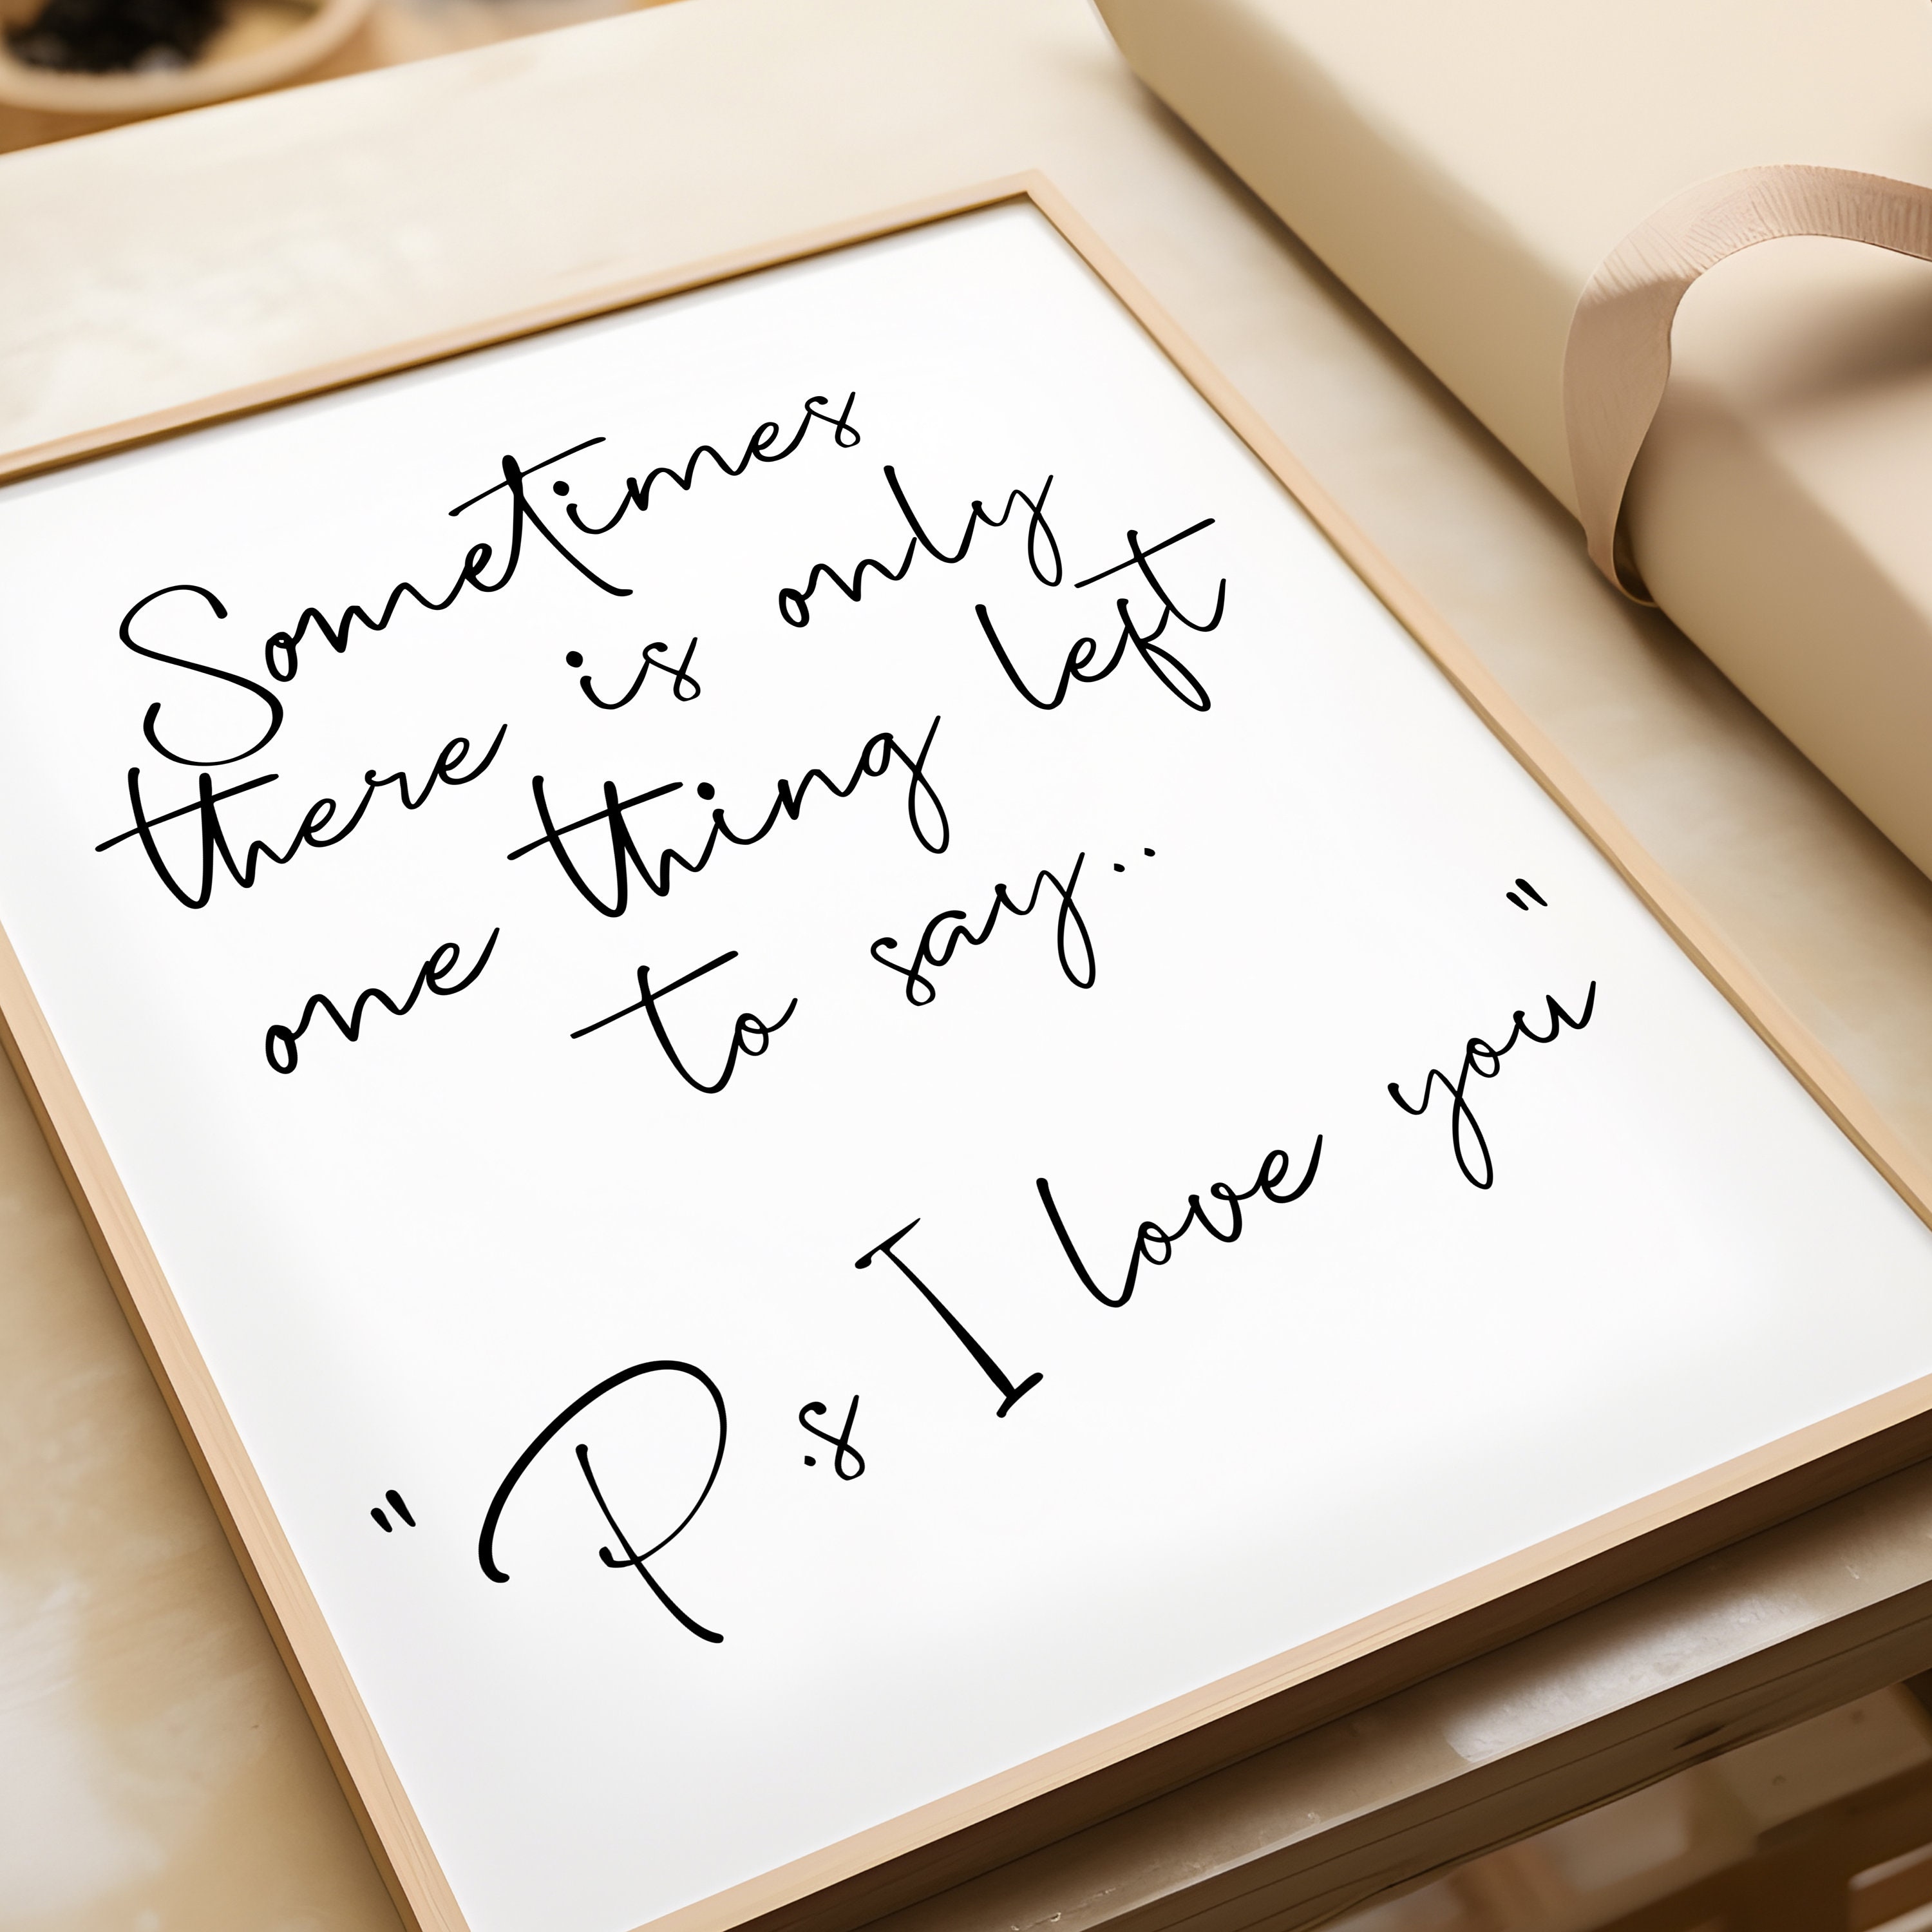 Sometimes
there is only
one thing left
to say...
"P.s I love you"